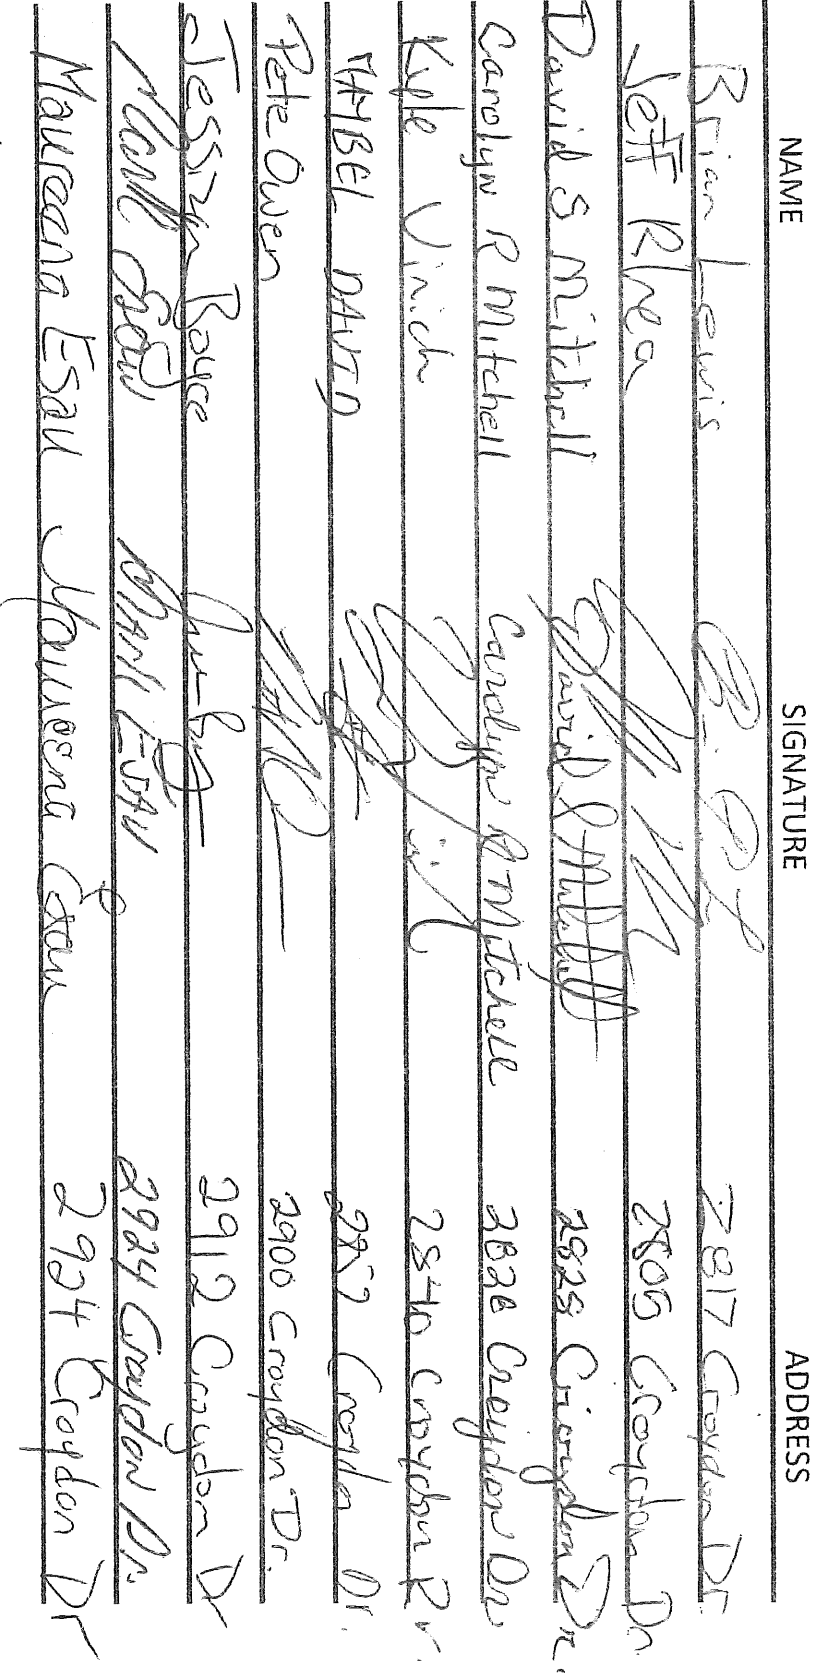 NAME SIGNATURE ADDRESS
Brian Lewis 2817 Croydon Dr
Jeff Rhea 2805 Croydon Dr.
David S Mitchell David S Mitchell 2828 Croydon Dr.
Carolyn R Mitchell Carolyn R Mitchell 2828 Croydon Dr
Kyle Vinich 2840 Croydon Dr.
MAYBEL DAVID Croydon Dr.
Pete Owen 2900 Croydon Dr.
Jesslyn Boyce 2912 Croydon Dr
Mark Esau MARK ESAU 2924 Croydon Dr.
Maureena Esau Maureena Esau 2924 Croydon Dr